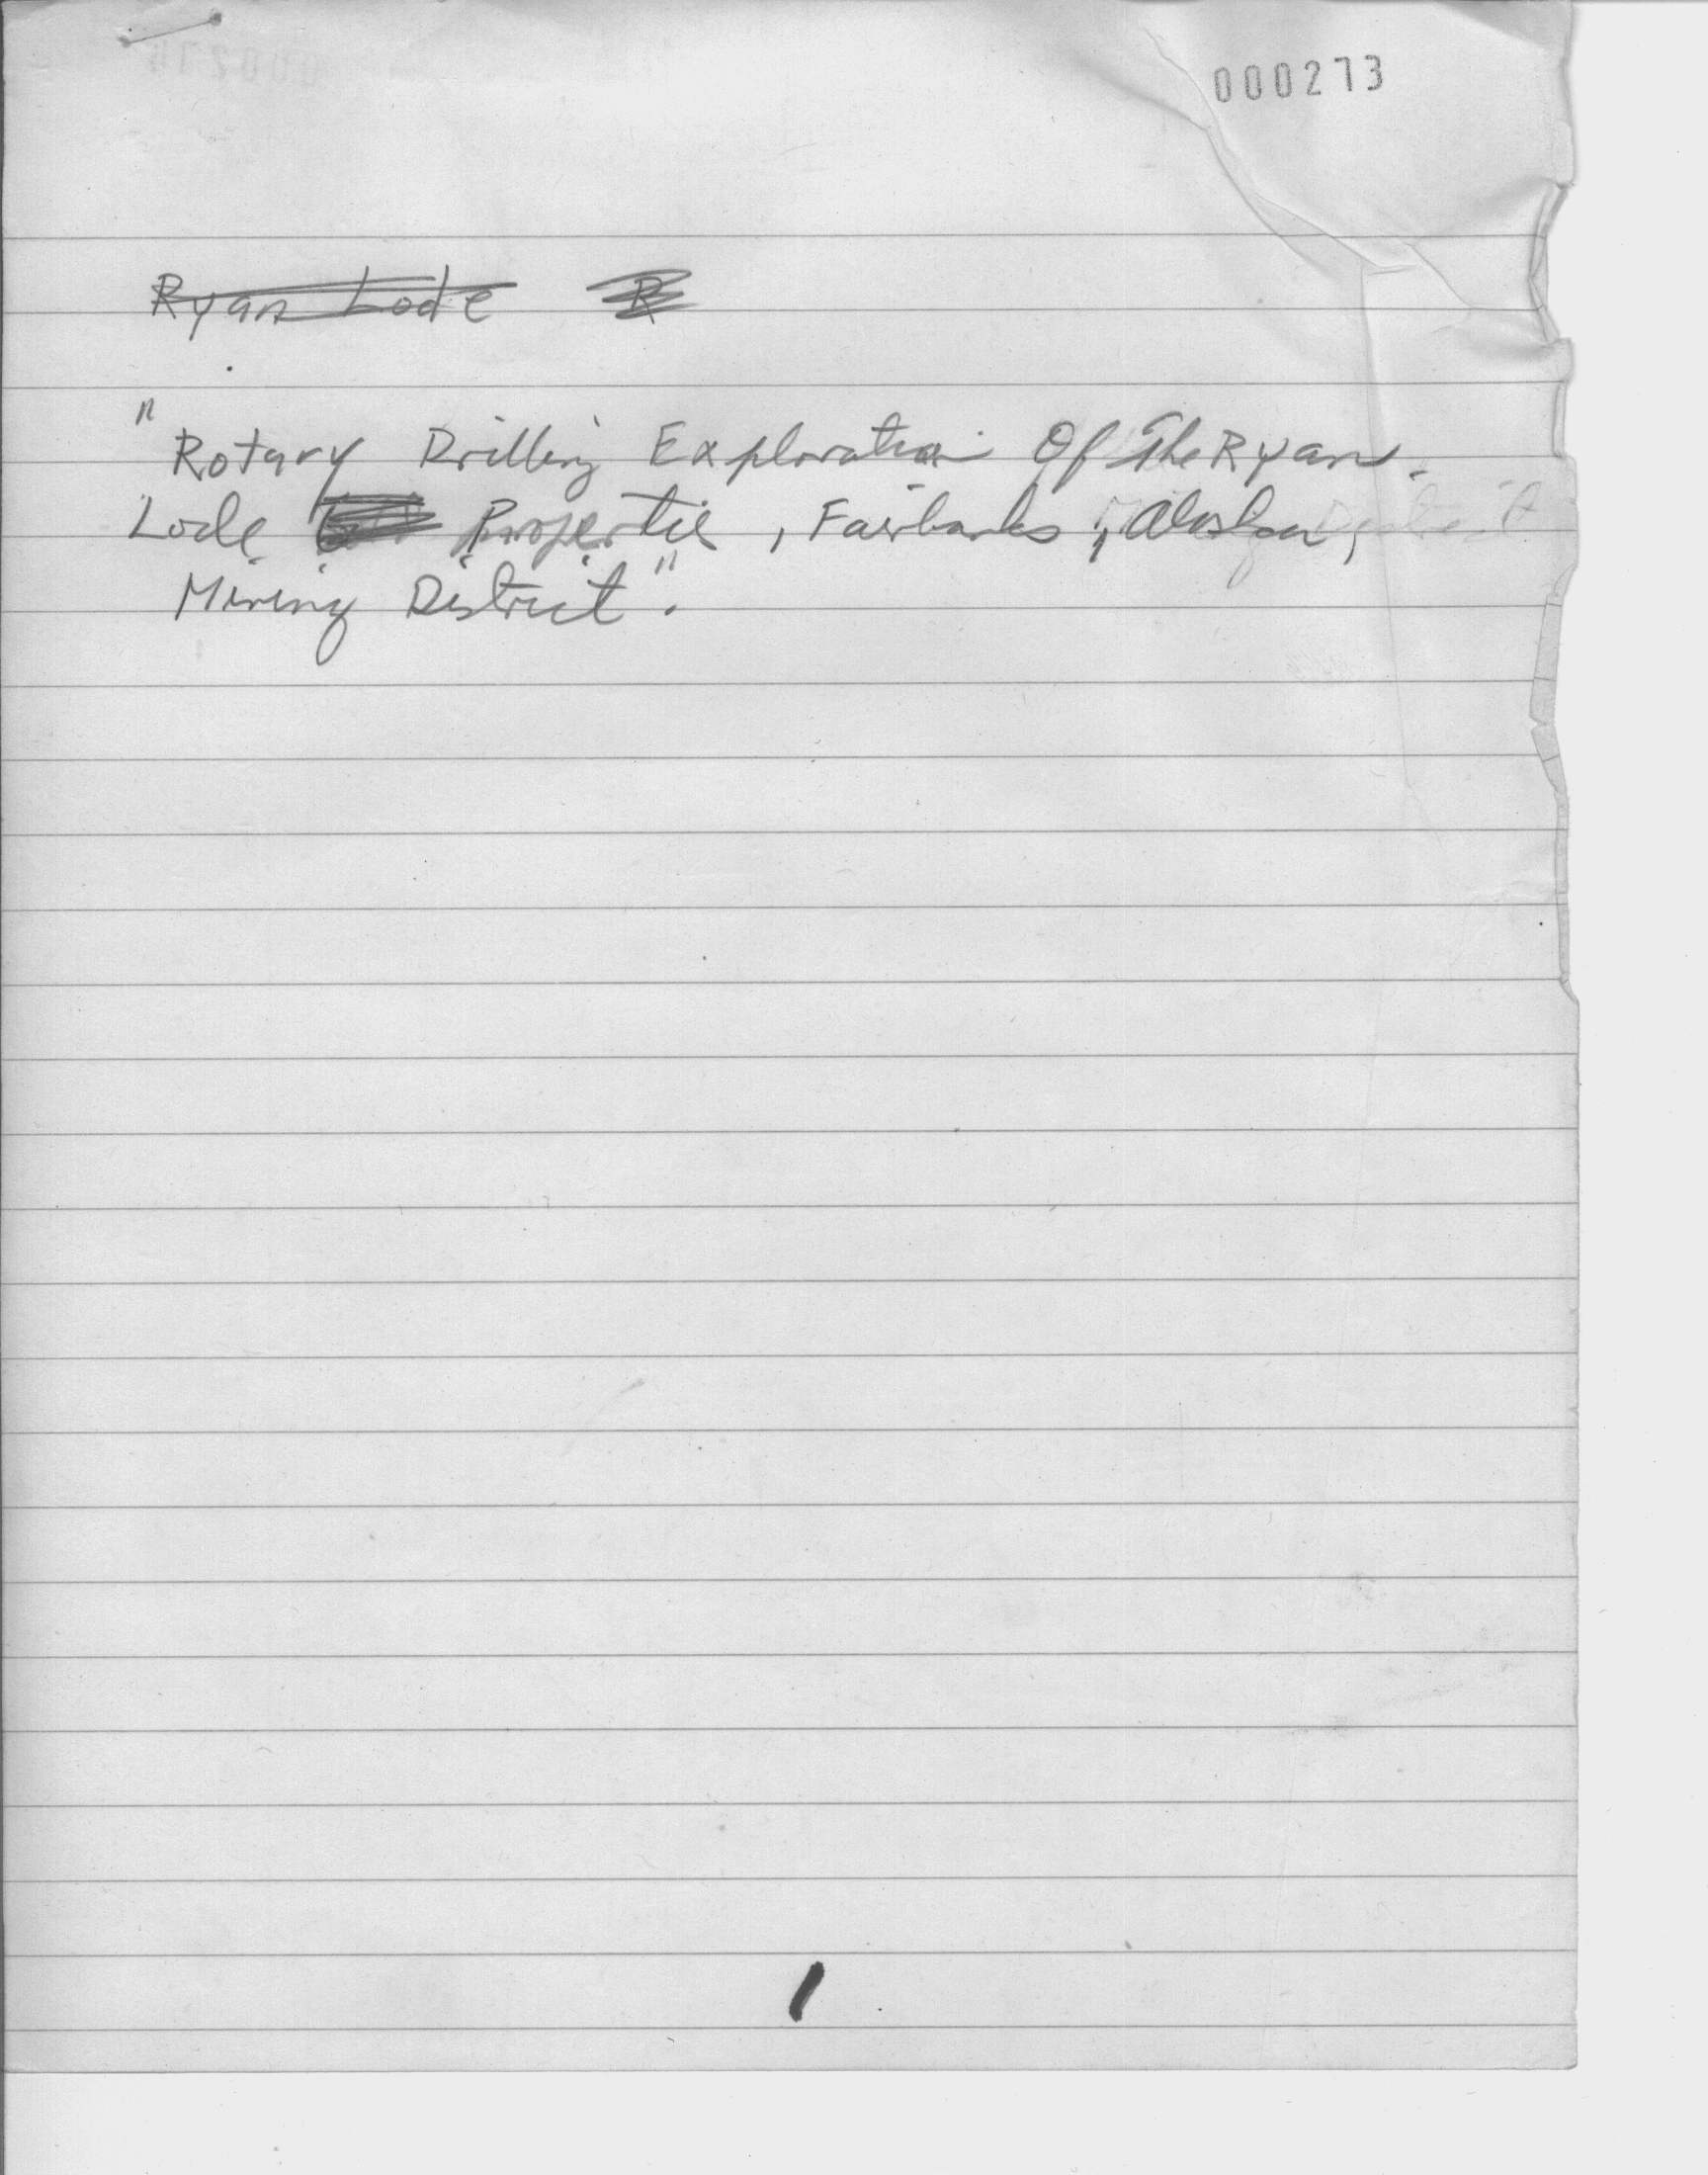 000273
Ryan Lode R
"Rotary Drilling Exploration Of The Ryan
Lode Properties, Fairbanks, Alaska,
Mining District".
1